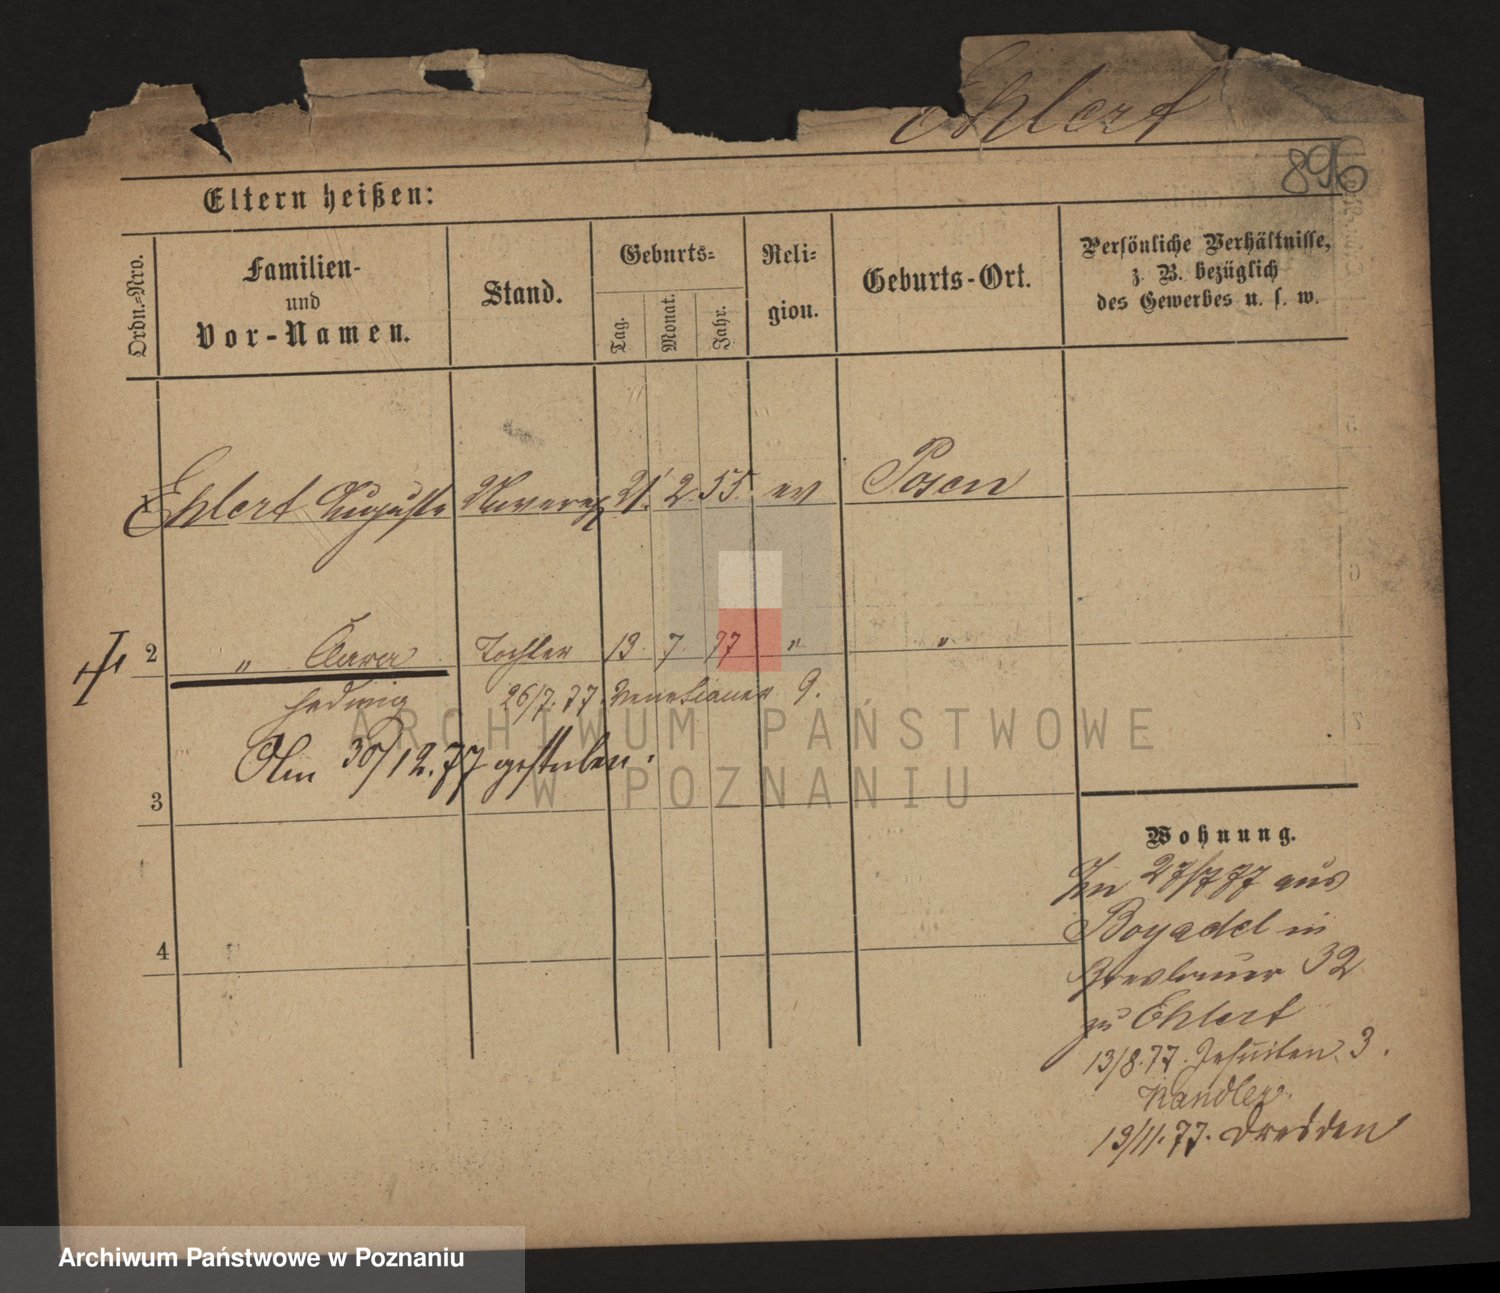 Ehlert
896
Eltern heißen:
Ordn.-Nro.
Familien-
und
Vor-Namen.
Stand.
Geburts-
Tag.
Monat.
Jahr.
Reli-
gion.
Geburts-Ort.
Persönliche Verhältnisse,
z. B. bezüglich
des Gewerbes u. s. w.
1 Ehlert Auguste 21. 2. 55. ev Posen
2 " Clara Tochter 19. 7. 77 " "
Hedwig 26/7. 77. Venetianer 9.
Am 30/12. 77 gestorben.
3
4
Wohnung.
27/7 77 aus
Boyadel in
Breslauer 32
zu Ehlert
13/8. 77. Jesuiten. 3.
Kandler.
19/11. 77. Dresden
ARCHIWUM PAŃSTWOWE
W POZNANIU
Archiwum Państwowe w Poznaniu